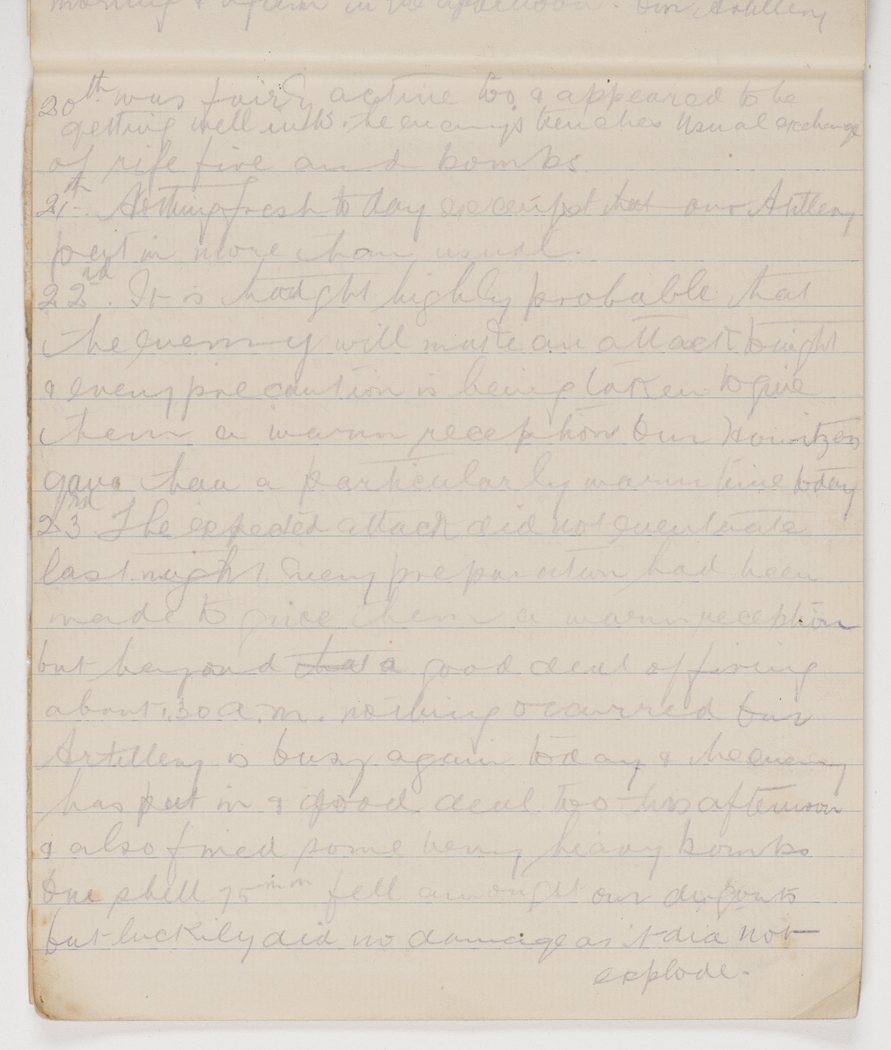 morning & again in the afternoon. Our Artillery
20th was fairly active too & appeared to be
getting well into the enemys trenches Usual exchange
of rifle fire and bombs.
21st. Nothing fresh today except that our Artillery
put in more than usual.
22nd. It is thought highly probable that
the enemy will make an attack tonight
& every precaution is being taken to give
them a warm reception Our Howitzers
gave them a particularly warm time today
23rd The expected attack did not eventuate
last night. Every preparation had been
made to give them a warm reception
but beyond that a good deal of firing
about 1.30 a.m. nothing occurred Our
Artillery is busy again today & the enemy
has put in a good deal too this afternoon
& also fired some very heavy bombs
One shell 75mm fell amongst our dugouts
but luckily did no damage as it did not
explode.